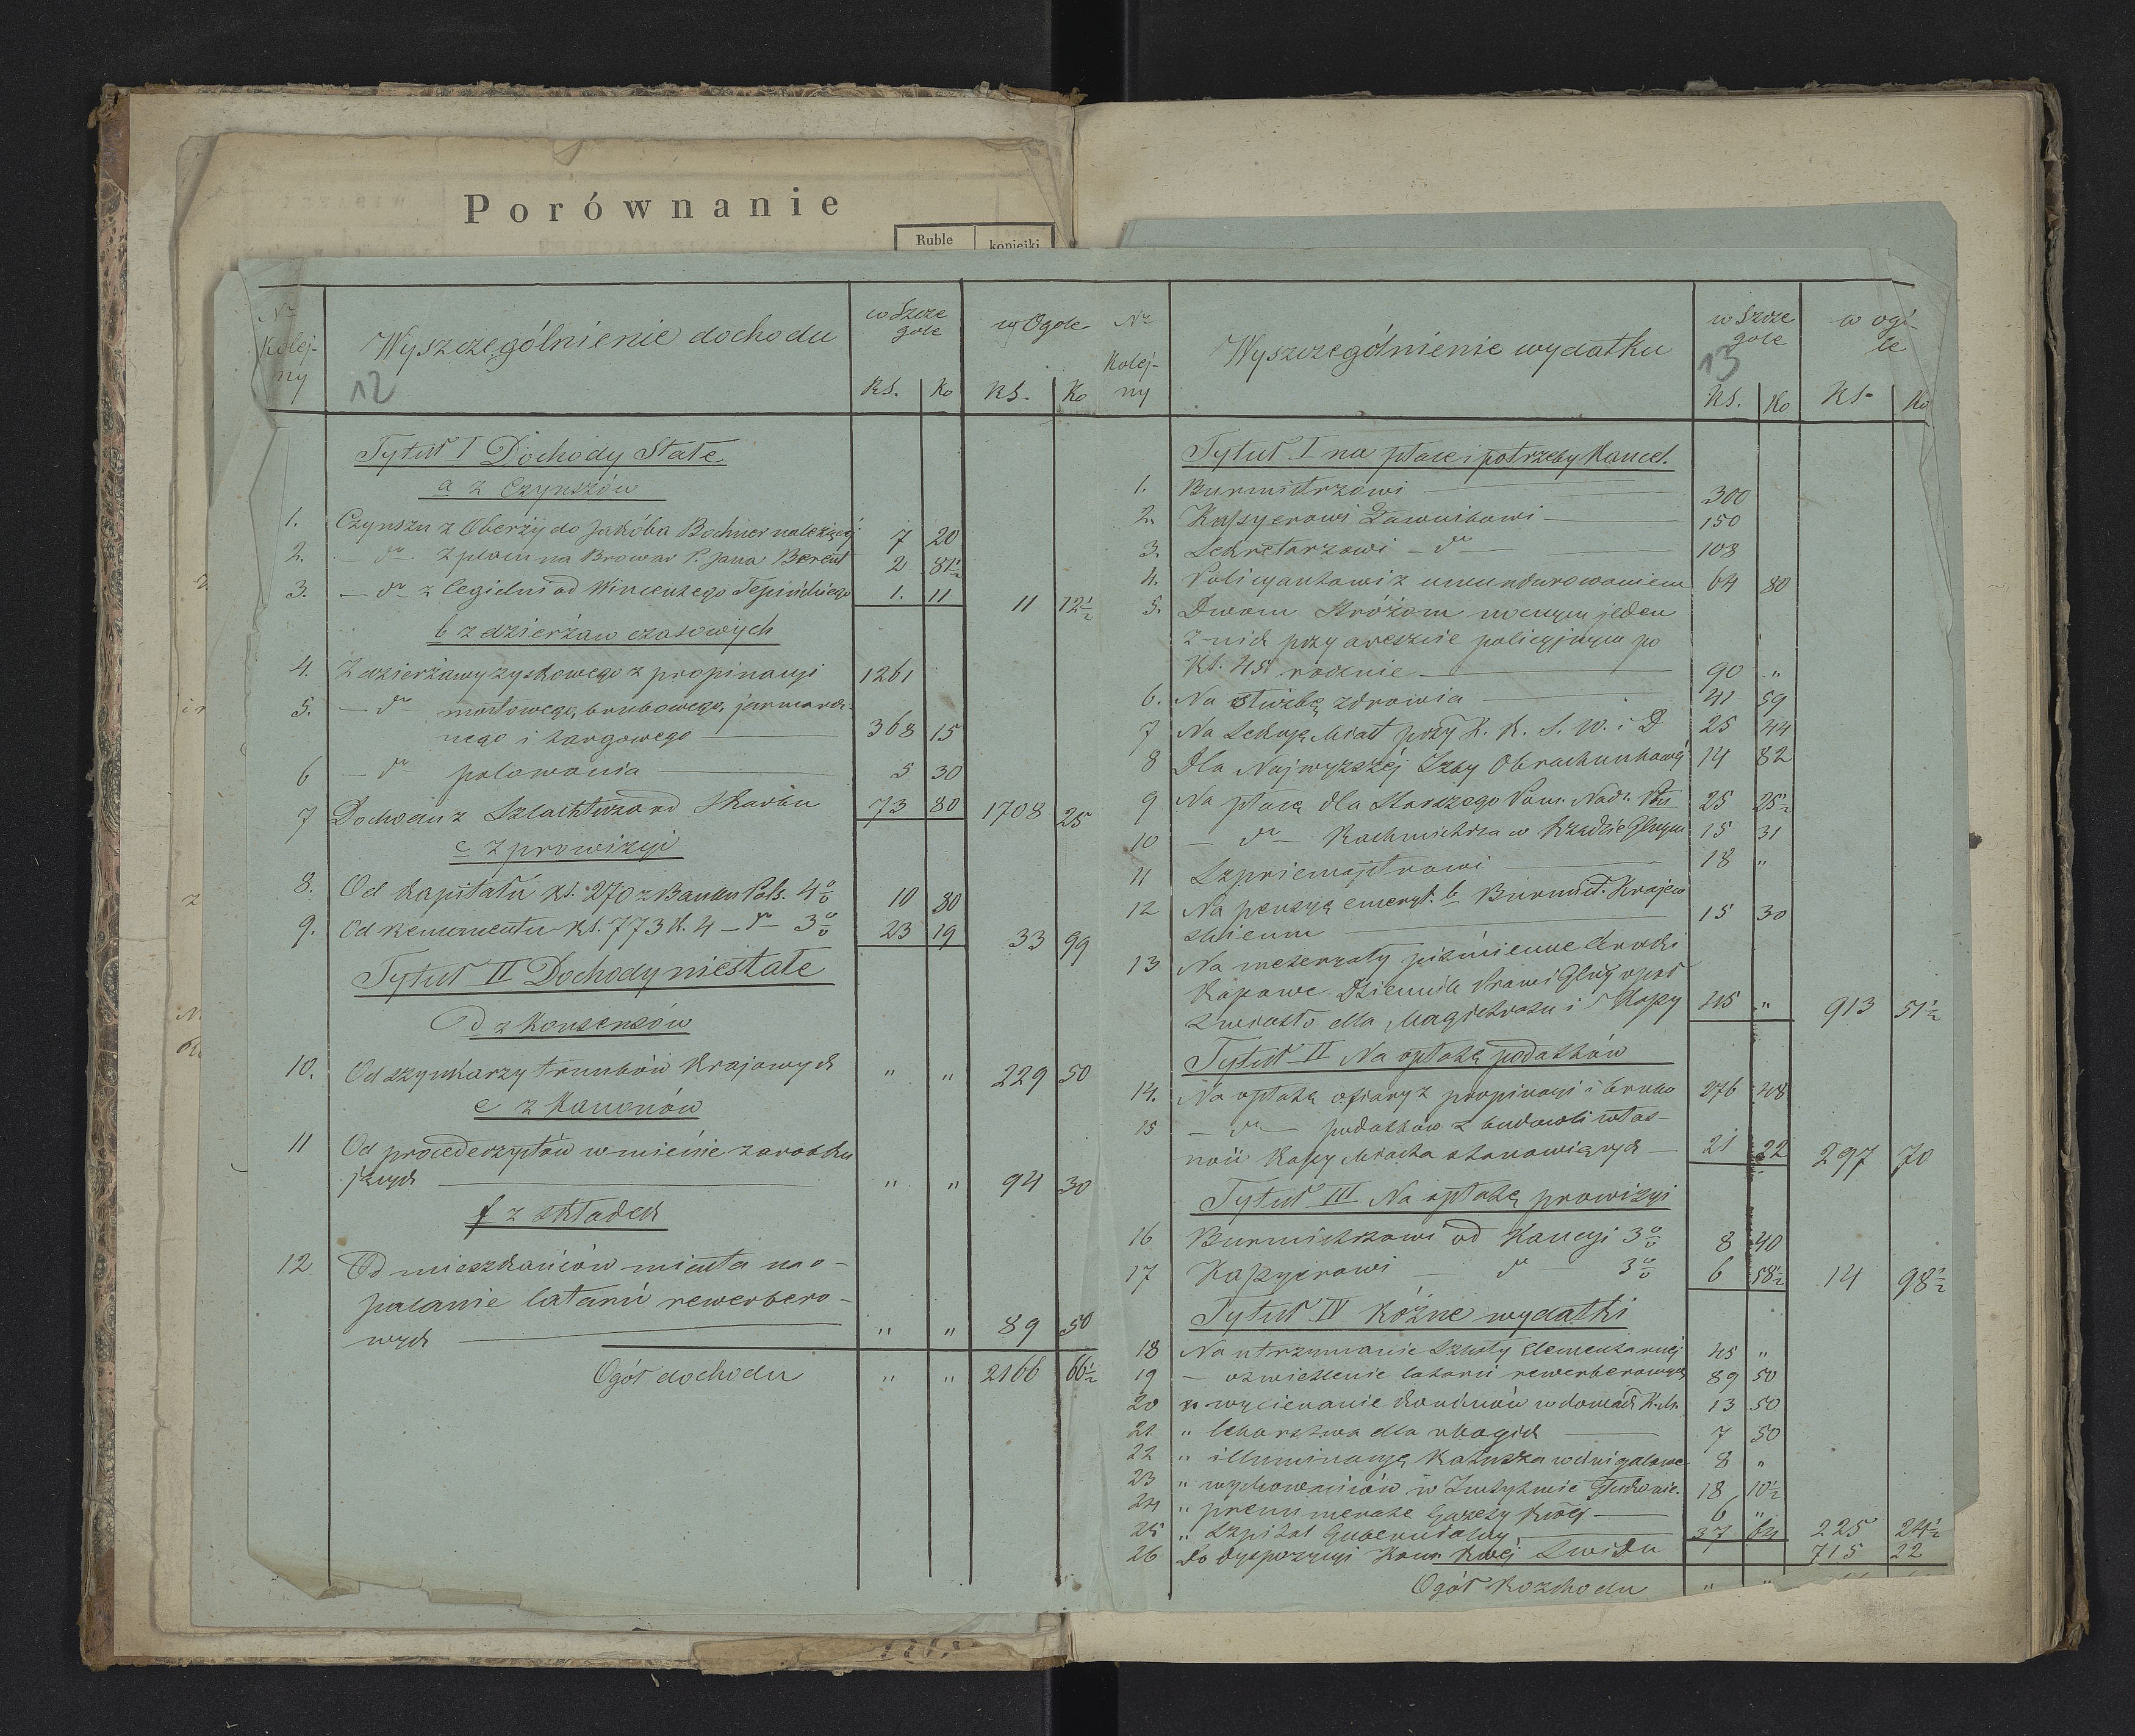 Porównanie
Ruble kopiejki
Nr Kolejny
Wyszczególnienie dochodu
w Szczegole
w Ogole
Rs. Ko Rs. Ko
12
Tytuł I Dochody Stałe
a z Czynszów
1. Czynszu z Oberży do Jakóba Bochner należącéj 7 20
2. — dto z placu na Browar P. Jana Berent 2 81½
3. — dto z Cegielni od Wincentego Tepińskiego 1. 11 11 12½
b z dzierżaw czasowych
4. Z dzierżawy zyskowego z propinacyi 1261
5. — dto mostowego, brukowego, jarmarcz-
nego i targowego — 368 15
6 — dto polowania — 5 30
7 Dochodu z Szlachtuza od Skarbu 73 80 1708 25
c z prowizyi
8. Od Kapitału Rs. 270 z Banku Pols. 4% 10 80
9. Od remanentu Rs. 773 k. 4 — dto 3% 23 19 33 99
Tytuł II Dochody niestałe
d z Konsensów
10. Od szynkarzy trunków Krajowych " " 229 50
e z Kanonów
11 Od procederzystów w mieście zarobku-
jących — " " 94 30
f z składek
12 Od mieszkańców miasta na o-
palanie latarń rewerbero-
wych — " " 89 50
Ogół dochodu " " 2166 66½
Nr Kolejny
Wyszczególnienie wydatku
w Szczegole
w ogóle
13
Rs. Ko Rs. Ko
Tytuł I na płace i potrzeby Kancel.
1. Burmistrzowi — 300
2. Kassyerowi Ławnikowi — 150
3. Sekretarzowi — dto — 108
4. Policyantowi z umundurowaniem 64 80
5. Dwom Stróżom nocnym jeden
z nich przy areszcie policyjnym po
Rs. 45 rocznie — 90 "
6. Na służbę zdrowia — 41 59
7 Na Sekcyę Miast przy K. R. S. W. i D 25 44
8 Dla Najwyższéj Izby Obrachunkowéj 14 82
9 Na płacę dla Starszego Nadr. 25 25½
10 — dto — Rachmistrza w Rządzie Gbnym 15 31
11 Szpriemajstrowi — 18 "
12 Na pensyę emeryt. b. Burmist. Krajew
skiemu — 15 30
13 Na materyały piśmienne druki
Kassowe Dziennik Praw i Gbny opał
światło dla Magistratu i Kassy 45 " 913 51½
Tytuł II Na opłatę podatków
14. Na opłatę ofiary z propinacyi i bruko 276 48
15 — dto — podatków z budowli włas-
ność Kassy Miasta stanowiących — 21 22 297 70
Tytuł III Na opłatę prowizyi
16 Burmistrzowi od Kaucyi 3% 8 40
17 Kassyerowi — dto — 3% 6 58½ 14 98½
Tytuł IV Różne wydatki
18 Na utrzymanie Szkoły Elementarnéj 45 "
19 — oświetlenie latarń rewerberowych 89 50
20 " wycieranie Kominów w domach K. M. 13 50
21 " lekarstwa dla ubogich — 7 50
22 " illuminacyę Ratusza w dni galowe 8 "
23 " wychowańców w Instytucie Głuchonie. 18 10½
24 " prenumeratę Gazety Rząj — 6 "
25 " Szpital Gubernialny 37 64 225 24½
26 Do dyspozycyi Kom. Rząj 715 22
Ogół Rozchodu " "